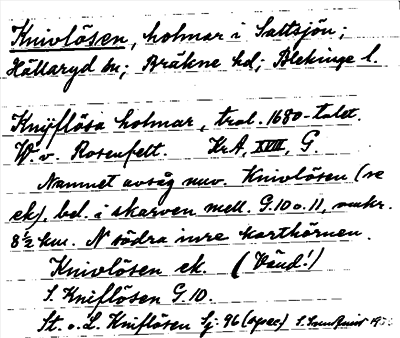 Knivlösen, holmar i Saltsjön;
Hällaryd sn; Bräkne hd; Blekinge l.
Knyflösa holmar, trol. 1680-talet.
W. v. Rosenfelt. KrA, XVII, G
Namnet avsåg nuv. Knivlösen (se
ek), bel. i skarven mell. G. 10 o. 11, omkr.
8½ km. N södra inre karthörnen.
Knivlösen ek. (Vänd!)
S. Kniflösen G. 10.
St. o. L. Kniflösen Sj: 96 (spec)